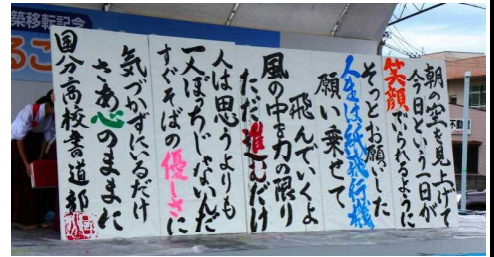 築移転記念
朝の空を見上げて
今日という一日が
笑顔でいられるように
そっとお願いした
人生は紙飛行機
願い乗せて
飛んでいくよ
風の中を力の限り
ただ進むだけ
人は思うよりも
一人ぼっちじゃないんだ
すぐそばの優しさに
気づかずにいるだけ
さあ心のままに
国分高校書道部
不動